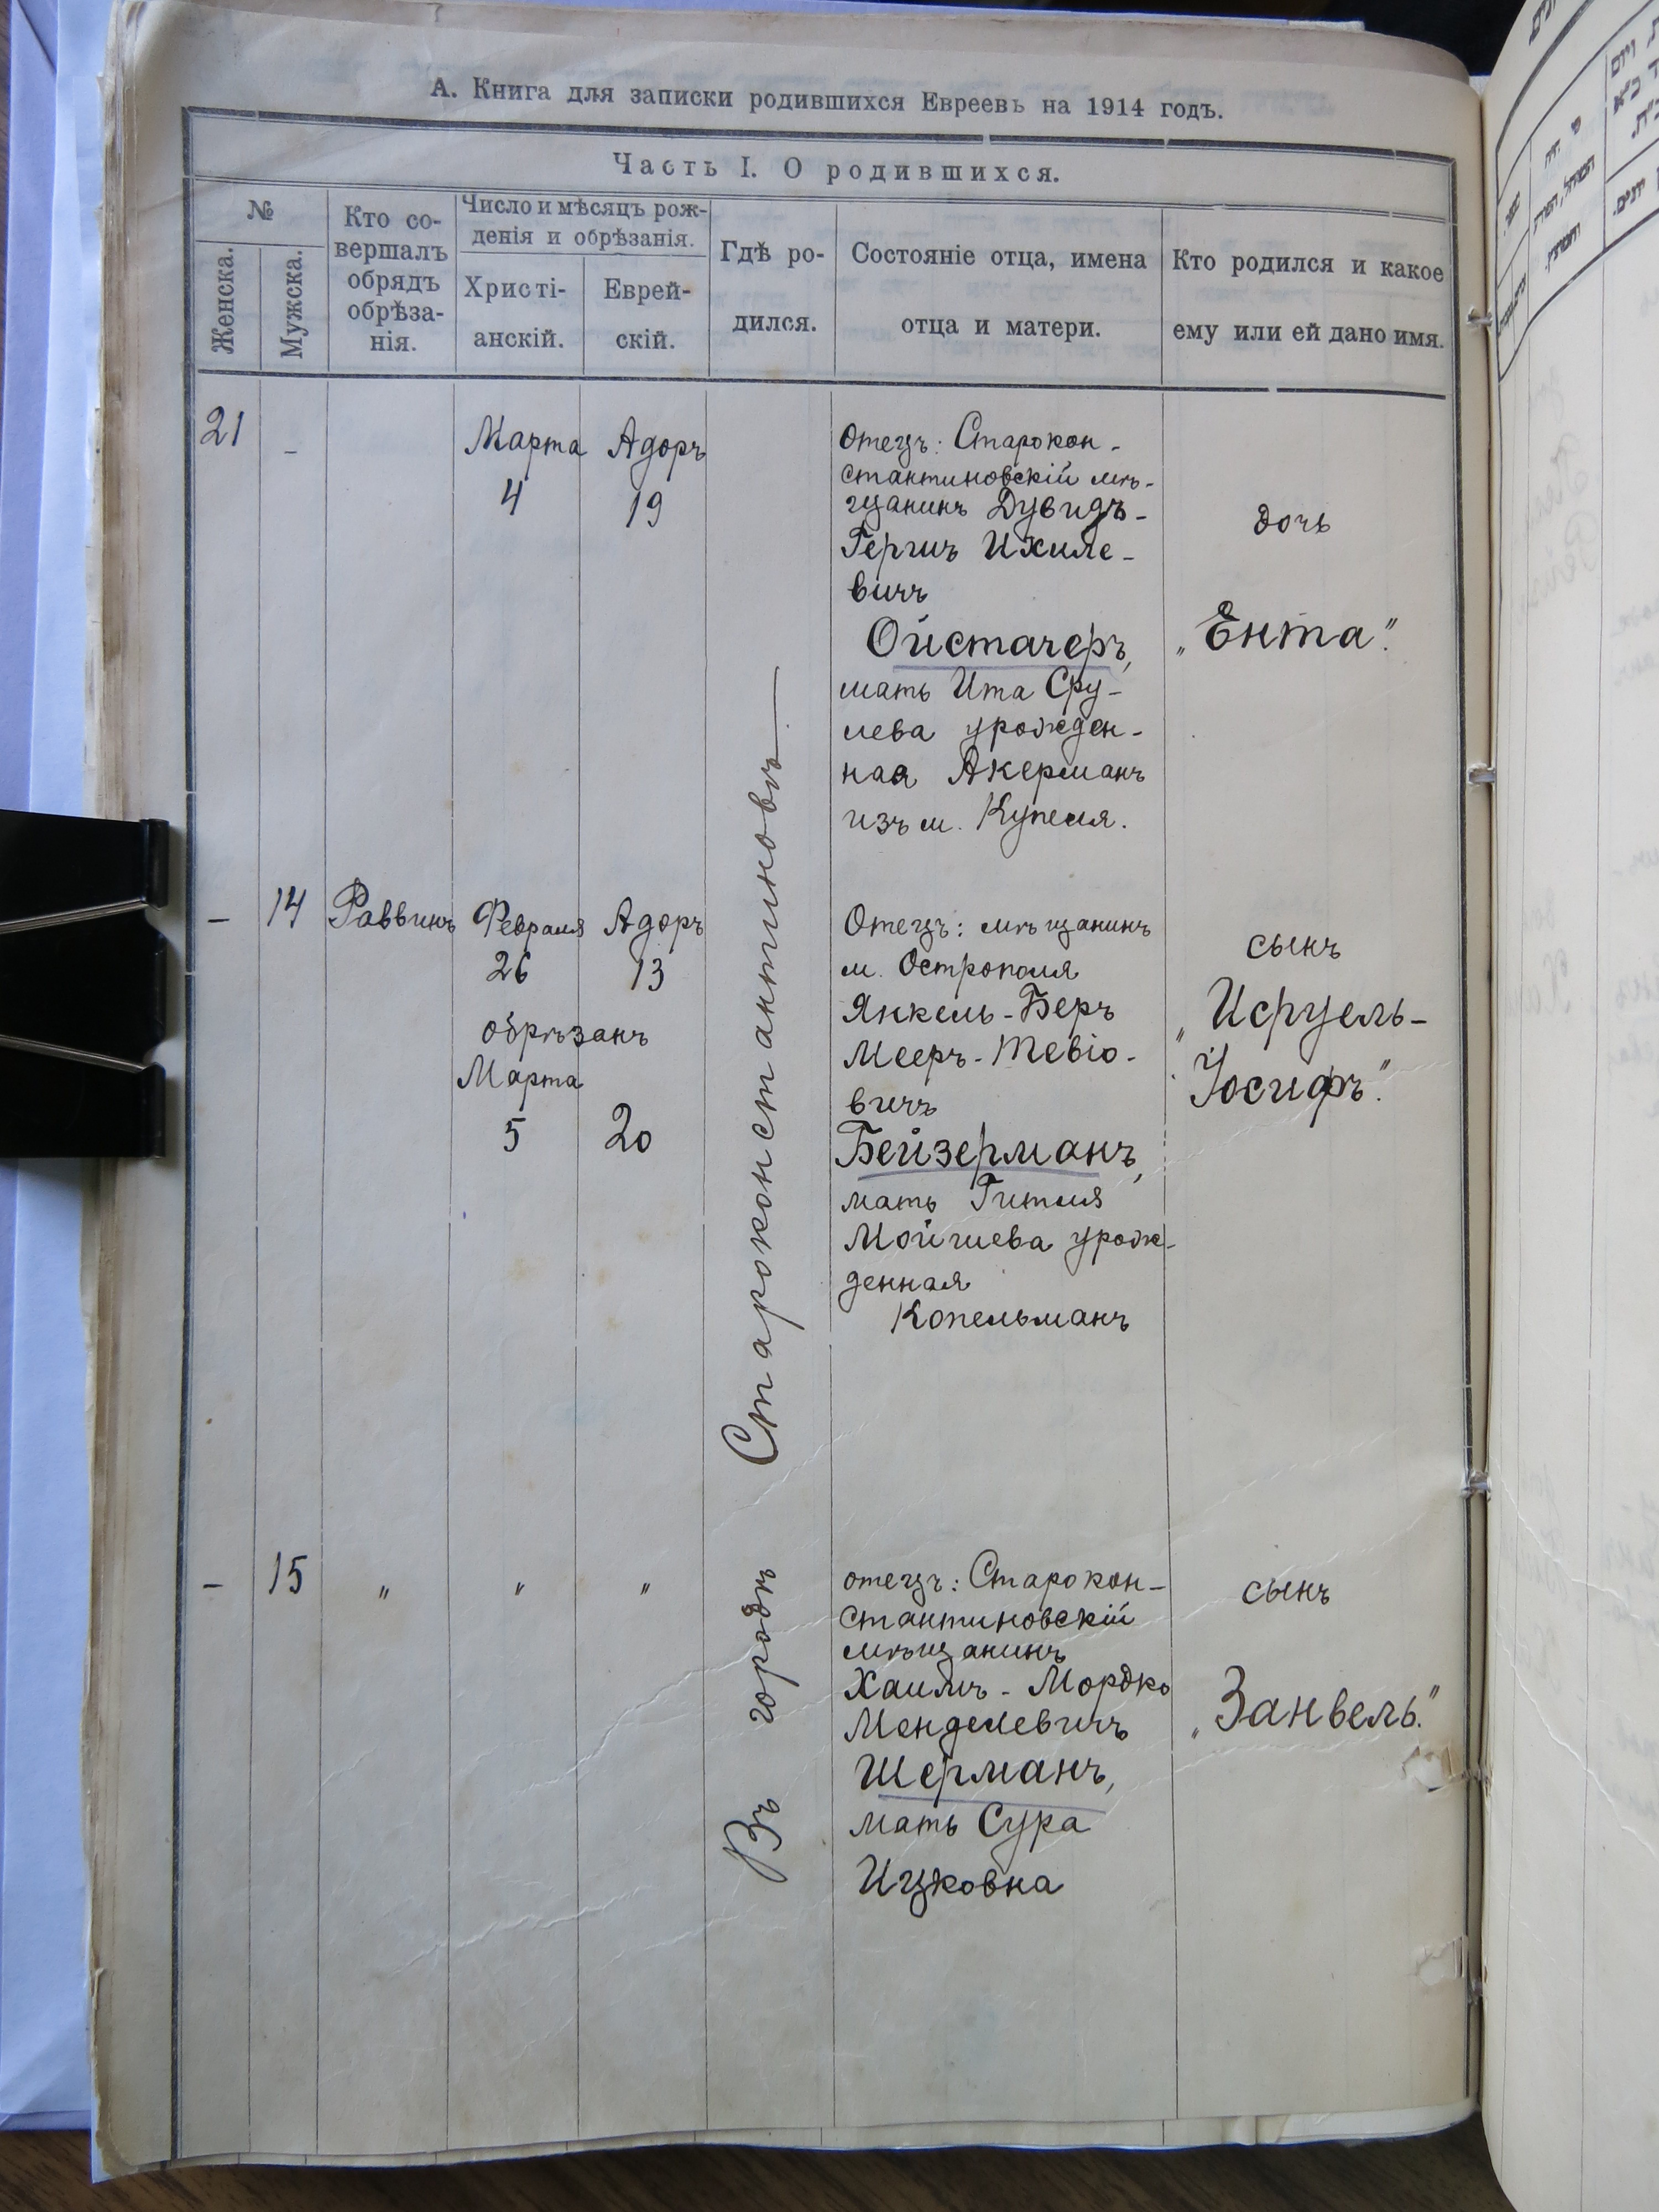 А. Книга для записки родившихся Евреевъ на 1914 годъ.
Часть I. О родившихся.
№
Женска.
Мужска.
Кто со-
вершалъ
обрядъ
обрѣза-
нія.
Число и мѣсяцъ рож-
денія и обрѣзанія.
Христі-
анскій.
Еврей-
скій.
Гдѣ ро-
дился.
Состояніе отца, имена
отца и матери.
Кто родился и какое
ему или ей дано имя.
21
-
Марта
4
Адоръ
19
Отецъ: Старокон-
стантиновскій мѣ-
щанинъ Дувидъ-
Гершъ Ихиле-
вичъ
Ойстачеръ,
мать Ита Сру-
лева урожден-
ная Акерманъ
изъ м. Купеля.
дочь
„Ента".
-
14
Раввинъ
Февраля
26
Адоръ
13
обрѣзанъ
Марта
5
20
Отецъ: мѣщанинъ
м. Острополя
Янкель-Беръ
Мееръ-Тевіо-
вичъ
Бейзерманъ,
мать Гитля
Мойшева урож-
денная
Копельманъ
сынъ
„Исруель-
Іосифъ".
-
15
„
„
„
отецъ: Старокон-
стантиновскій
мѣщанинъ
Хаимъ-Мордко
Менделевичъ
Шерманъ,
мать Сура
Ицковна
сынъ
„Занвель."
Въ городѣ Староконстантиновѣ